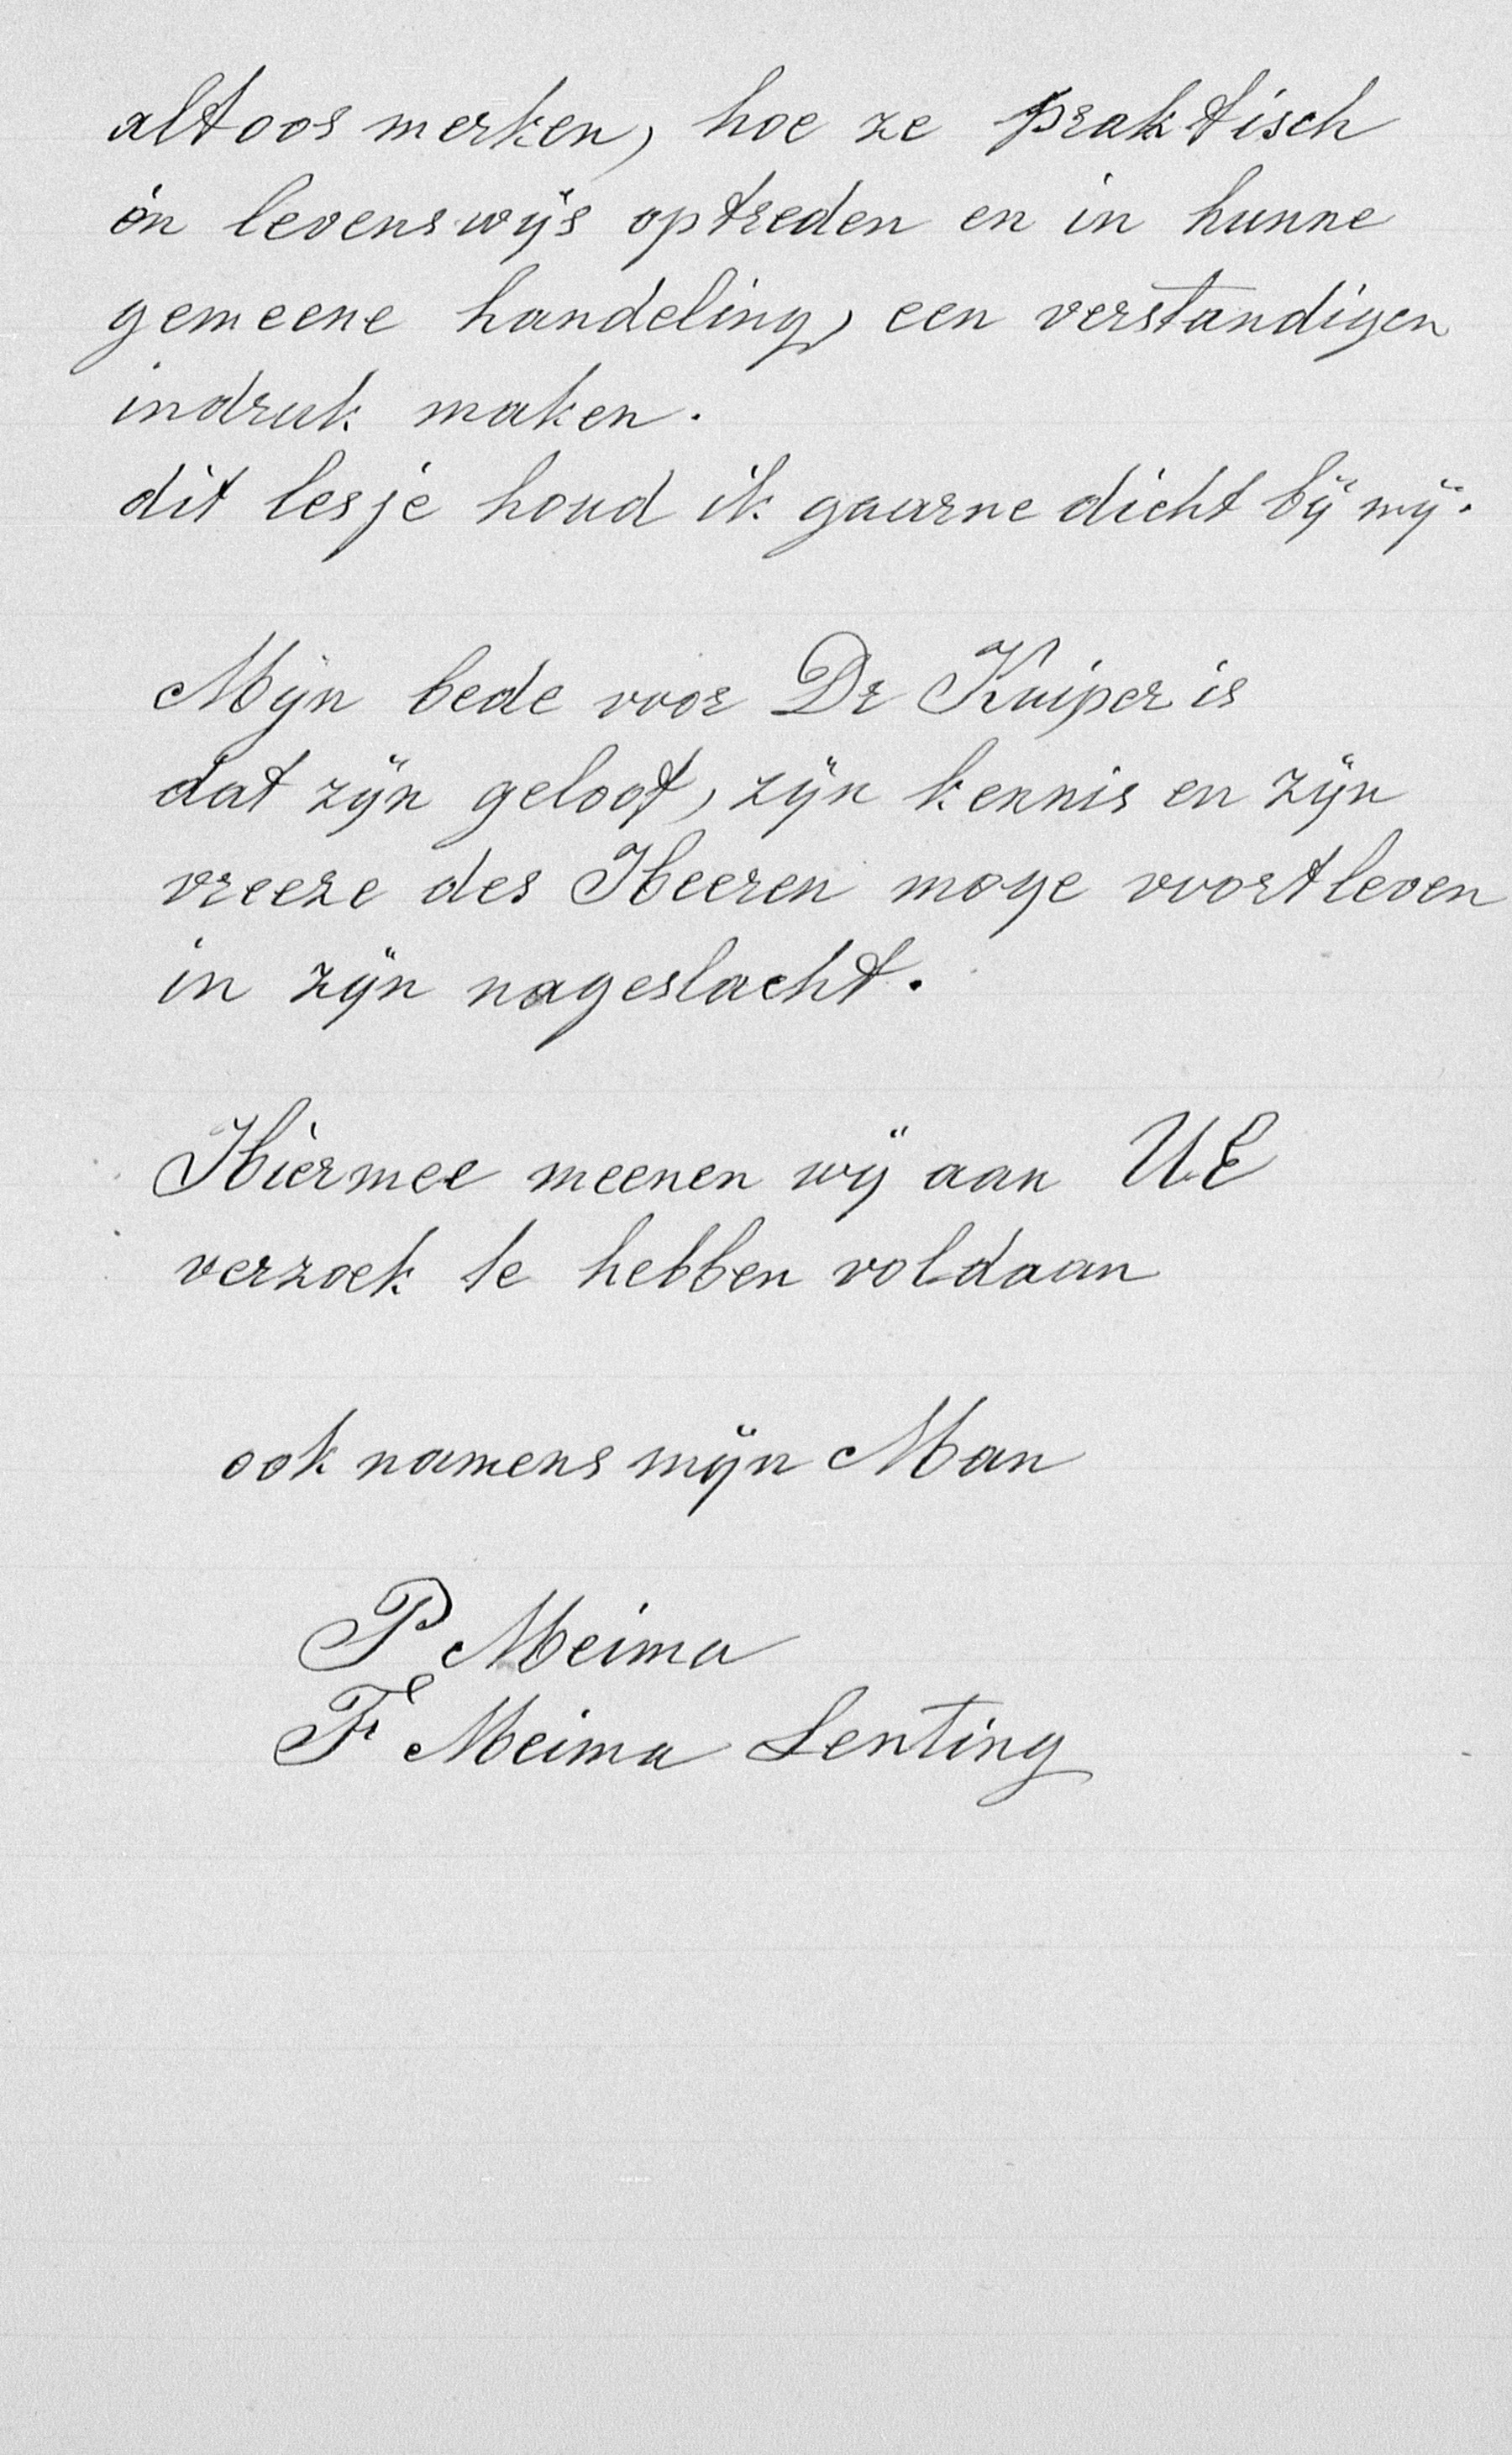 altoos merken, hoe ze praktisch
én levenswijs optreden en in hunne
gemeene handeling, een verstandigen
indruk maken.
dit lesje houd ik gaarne dicht bij mij.
Mijn bede voor Dr Kuiper is
dat zijn geloof, zijn kennis en zijn
vreeze des Heeren moge voortleven
in zijn nageslacht.
Hiermee meenen wij aan UE
verzoek te hebben voldaan
ook namens mijn Man
P Meima
Fr Meima Lenting